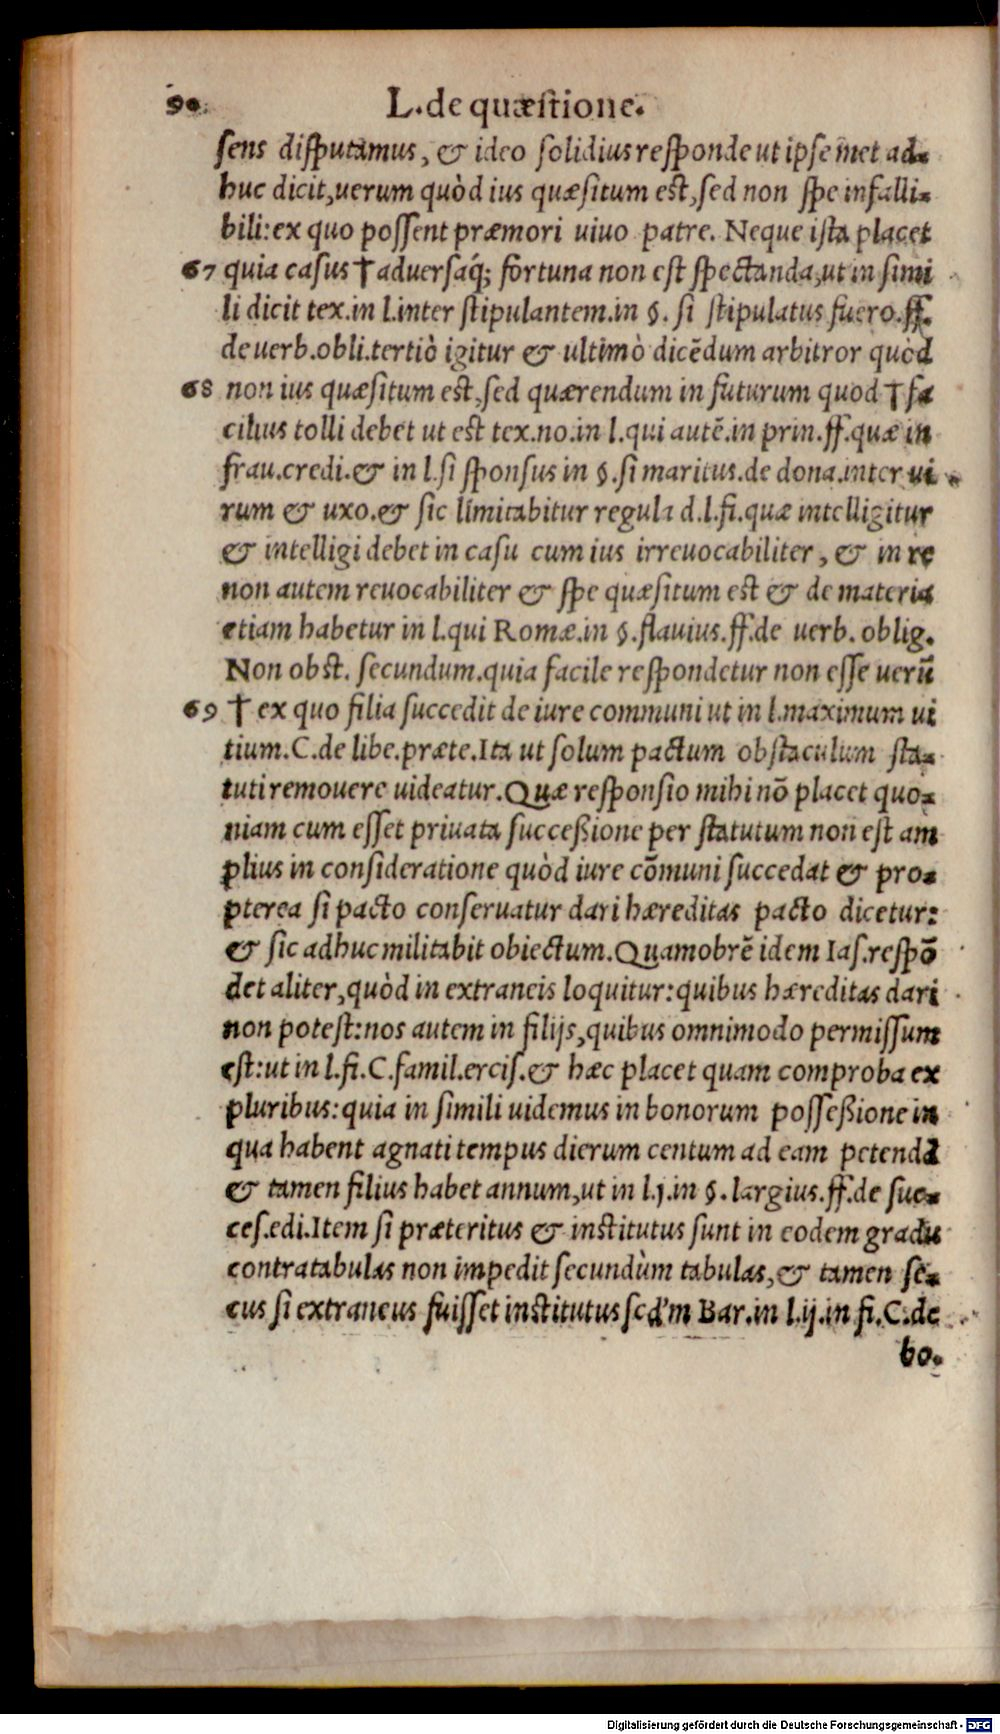 90 L. de quæstione.
sens disputamus, & ideo solidius responde ut ipse met ad-
huc dicit, uerum quòd ius quæsitum est, sed non spe infalli-
bili: ex quo possent præmori uiuo patre. Neque ista placet
67 quia casus † aduersaq́; fortuna non est spectanda, ut in simi
li dicit tex. in l. inter stipulantem. in §. si stipulatus fuero. ff.
de uerb. obli. tertiò igitur & ultimò dicēdum arbitror quòd
68 non ius quæsitum est, sed quærendum in futurum quod † fa
cilius tolli debet ut est tex. no. in l. qui autē. in prin. ff. quæ in
frau. credi. & in l. si sponsus in §. si maritus. de dona. inter ui
rum & uxo. & sic limitabitur regula d. l. fi. quæ intelligitur
& intelligi debet in casu cum ius irreuocabiliter, & in re
non autem reuocabiliter & spe quæsitum est & de materia
etiam habetur in l. qui Romæ. in §. flauius. ff. de uerb. oblig.
Non obst. secundum. quia facile respondetur non esse uerū
69 † ex quo filia succedit de iure communi ut in l. maximum ui
tium. C. de libe. præte. Ita ut solum pactum obstaculum sta-
tuti remouere uideatur. Quæ responsio mihi nō placet quo-
niam cum esset priuata successione per statutum non est am
plius in consideratione quòd iure cōmuni succedat & pro-
pterea si pacto conseruatur dari hæreditas pacto dicetur:
& sic adhuc militabit obiectum. Quamobrē idem Ias. respō
det aliter, quòd in extraneis loquitur: quibus hæreditas dari
non potest: nos autem in filijs, quibus omnimodo permissum
est: ut in l. fi. C. famil. ercis. & hæc placet quam comproba ex
pluribus: quia in simili uidemus in bonorum possessione in
qua habent agnati tempus dierum centum ad eam petendā
& tamen filius habet annum, ut in l. j. in §. largius. ff. de suc-
ces. edi. Item si præteritus & institutus sunt in eodem gradu
contratabulas non impedit secundùm tabulas, & tamen se-
cus si extraneus fuisset institutus scd'm Bar. in l. ij. in fi. C. de
bo.
Digitalisierung gefördert durch die Deutsche Forschungsgemeinschaft - DFG